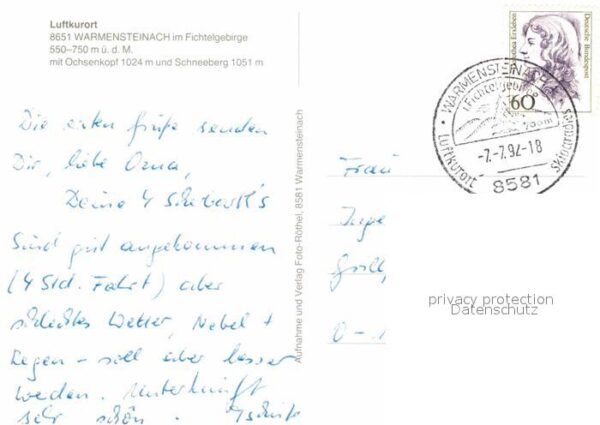 Luftkurort
8651 WARMENSTEINACH im Fichtelgebirge
550–750 m ü. d. M.
mit Ochsenkopf 1024 m und Schneeberg 1051 m
Die ersten Grüße senden
Dir, liebe Oma,
Deine 4
Sind gut angekommen
(4 Std. Fahrt) aber
schlechtes Wetter, Nebel +
Regen - soll aber besser
werden. Unterkunft
sehr schön.
Aufnahme und Verlag Foto-Röthel, 8581 Warmensteinach
Dorothea Erxleben
Deutsche Bundespost
60
WARMENSTEINACH
(Fichtelgebirge)
-7.-7.92-18
Luftkurort
8581
Frau
O-1
privacy protection
Datenschutz